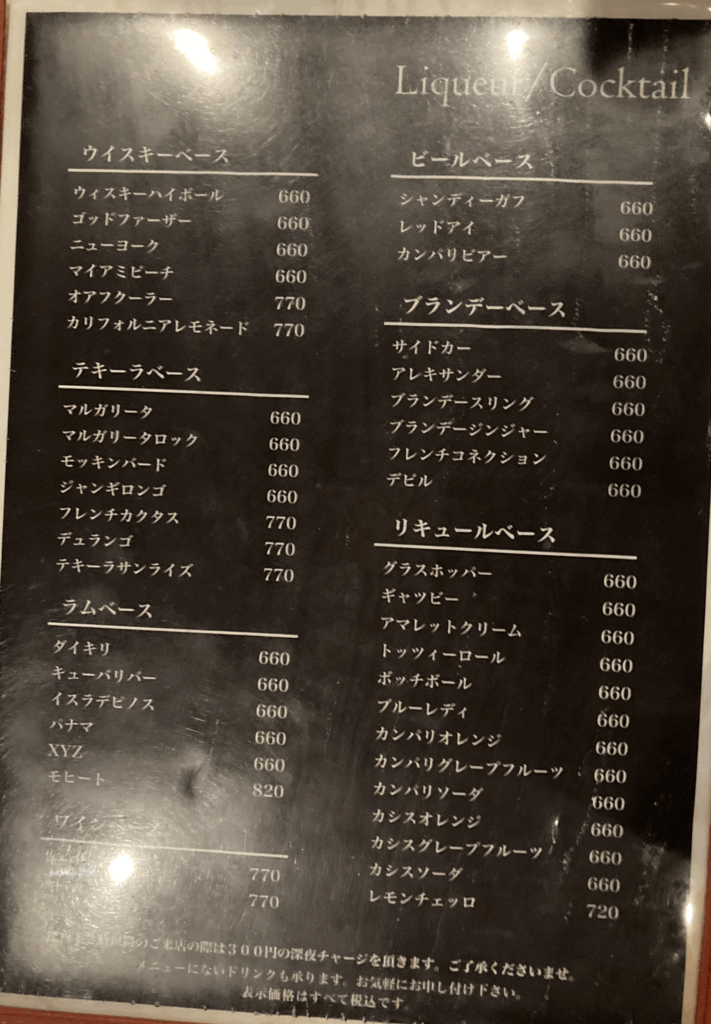 Liqueur/Cocktail
ウイスキーベース
ウィスキーハイボール 660
ゴッドファーザー 660
ニューヨーク 660
マイアミビーチ 660
オアフクーラー 770
カリフォルニアレモネード 770
テキーラベース
マルガリータ 660
マルガリータロック 660
モッキンバード 660
ジャンギロンゴ 660
フレンチカクタス 770
デュランゴ 770
テキーラサンライズ 770
ラムベース
ダイキリ 660
キューバリバー 660
イスラデピノス 660
パナマ 660
XYZ 660
モヒート 820
770
770
ビールベース
シャンディーガフ 660
レッドアイ 660
カンパリビアー 660
ブランデーベース
サイドカー 660
アレキサンダー 660
ブランデースリング 660
ブランデージンジャー 660
フレンチコネクション 660
デビル 660
リキュールベース
グラスホッパー 660
ギャツビー 660
アマレットクリーム 660
トッツィーロール 660
ボッチボール 660
ブルーレディ 660
カンパリオレンジ 660
カンパリグレープフルーツ 660
カンパリソーダ 660
カシスオレンジ 660
カシスグレープフルーツ 660
カシスソーダ 660
レモンチェッロ 720
のご来店の際は３００円の深夜チャージを頂きます。ご了承くださいませ。
メニューにないドリンクも承ります。お気軽にお申し付け下さい。
表示価格はすべて税込です。